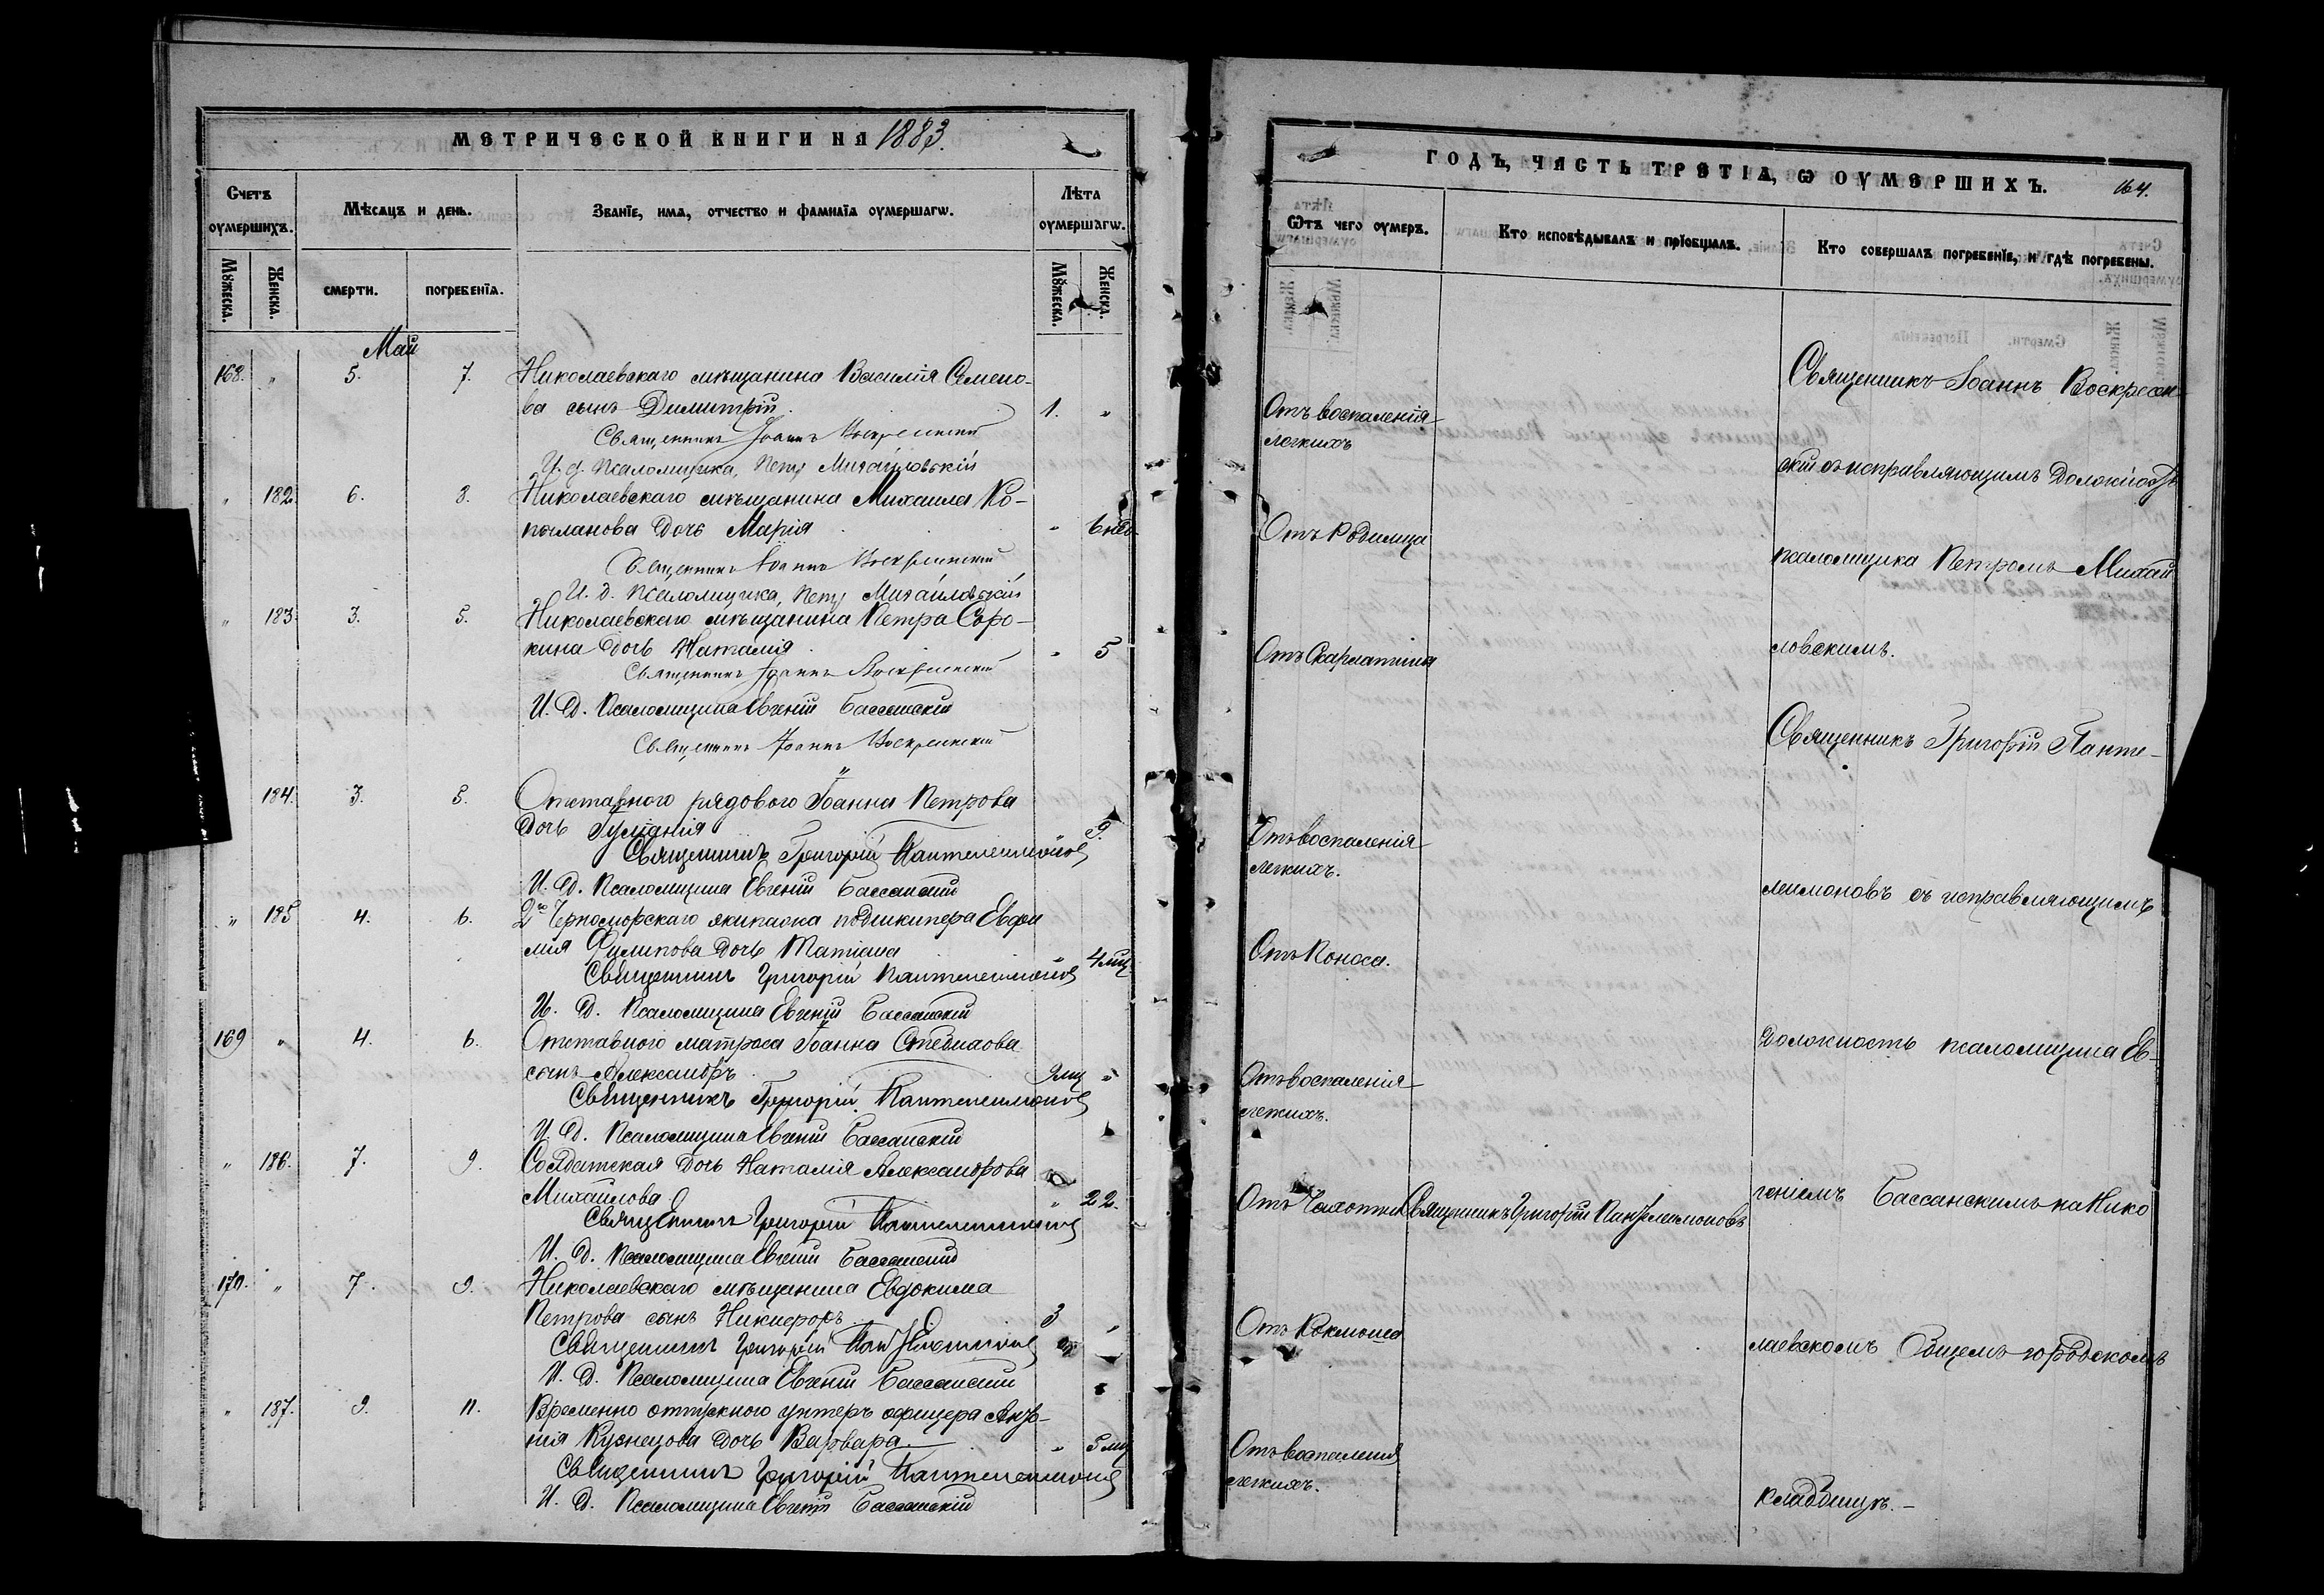 МЕТРИЧЕСКОЙ КНИГИ НА 1883.
Счетъ оумершихъ.
Мѣсѧцъ и день.
Званїе, имѧ, отчество и фамилїа оумершагѡ.
Лѣта оумершагѡ.
Мꙋжеска. Женска. смерти. погребенїѧ. Мꙋжеска. Женска.
Май
168. " 5. 7. Николаевскаго мѣщанина Василія Семено-
ва сынъ Димитрій. 1. "
Священникъ Іоаннъ Воскресенскій
И. д. Псаломщика, Петръ Михайловскій
" 182 6. 8. Николаевскаго мѣщанина Михаила
дочь Марія " 6 нед.
Священникъ Іоаннъ Воскресенскій
И. д. Псаломщика, Петръ Михайловскій
" 183. 3. 5. Николаевскаго мѣщанина Петра Соро-
кина дочь Наталія " 5
Священникъ Іоаннъ Воскресенскій
И. Д. Псаломщика Евгеній Бассанскій
Священникъ Іоаннъ Воскресенскій
184. 3. 5. Отставного рядового Іоанна Петрова
дочь Іуліанія 9.
Священникъ Григорій Пантелеимоновъ
И. Д. Псаломщика Евгеній Бассанскій
" 185 4. 6. 2го Черноморскаго экипажа подшкипера Евфи
мія Филипова дочь Татіана 4 мц
Священникъ Григорій Пантелеимоновъ
И. Д. Псаломщика Евгеній Бассанскій
169 " 4. 6. Отставного матроса Іоанна
сынъ Александръ 9 мц "
Священникъ Григорій Пантелеимоновъ
И. Д. Псаломщика Евгеній Бассанскій
" 186. 7. 9. Солдатская дочь Наталія Александрова
Михайлова " 22.
Священникъ Григорій Пантелеимоновъ
И. Д. Псаломщика Евгеній Бассанскій
170. " 7. 9. Николаевскаго мѣщанина Евдокима
Петрова сынъ Никифоръ 3
Священникъ Григорій Пантелеимоновъ
И. Д. Псаломщика Евгеній Бассанскій
" 187. 9. 11. Временно отпускного унтеръ офицера
Кузнецова дочь Варвара. " 5 мц
Священникъ Григорій Пантелеимоновъ
И. Д. Псаломщика Евгеній Бассанскій
ГОДЪ, ЧАСТЬ ТРЕТІѦ, Ѡ ОУМЕРШИХЪ.
164.
Ѿтъ чего оумеръ.
Кто исповѣдывалъ и прїобщалъ.
Кто совершалъ погребенїе, и гдѣ погребены.
Отъ воспаленія
легкихъ
Отъ Родимца
Отъ Скарлатины
Отъ воспаленія
легкихъ.
Отъ Поноса.
Отъ воспаленія
легкихъ.
Отъ Чахотки Священникъ Григорій Пантелеимоновъ
Отъ Коклюша
Отъ воспаленія
легкихъ.
Священникъ Іоаннъ Воскресен-
скій съ исправляющимъ должность
псаломщика Петромъ Михай
ловскимъ.
Священникъ Григорій Панте-
леимоновъ съ исправляющимъ
должность псаломщика Ев-
геніемъ Бассанскимъ на Нико
лаевскомъ Общемъ городскомъ
кладбищѣ.-